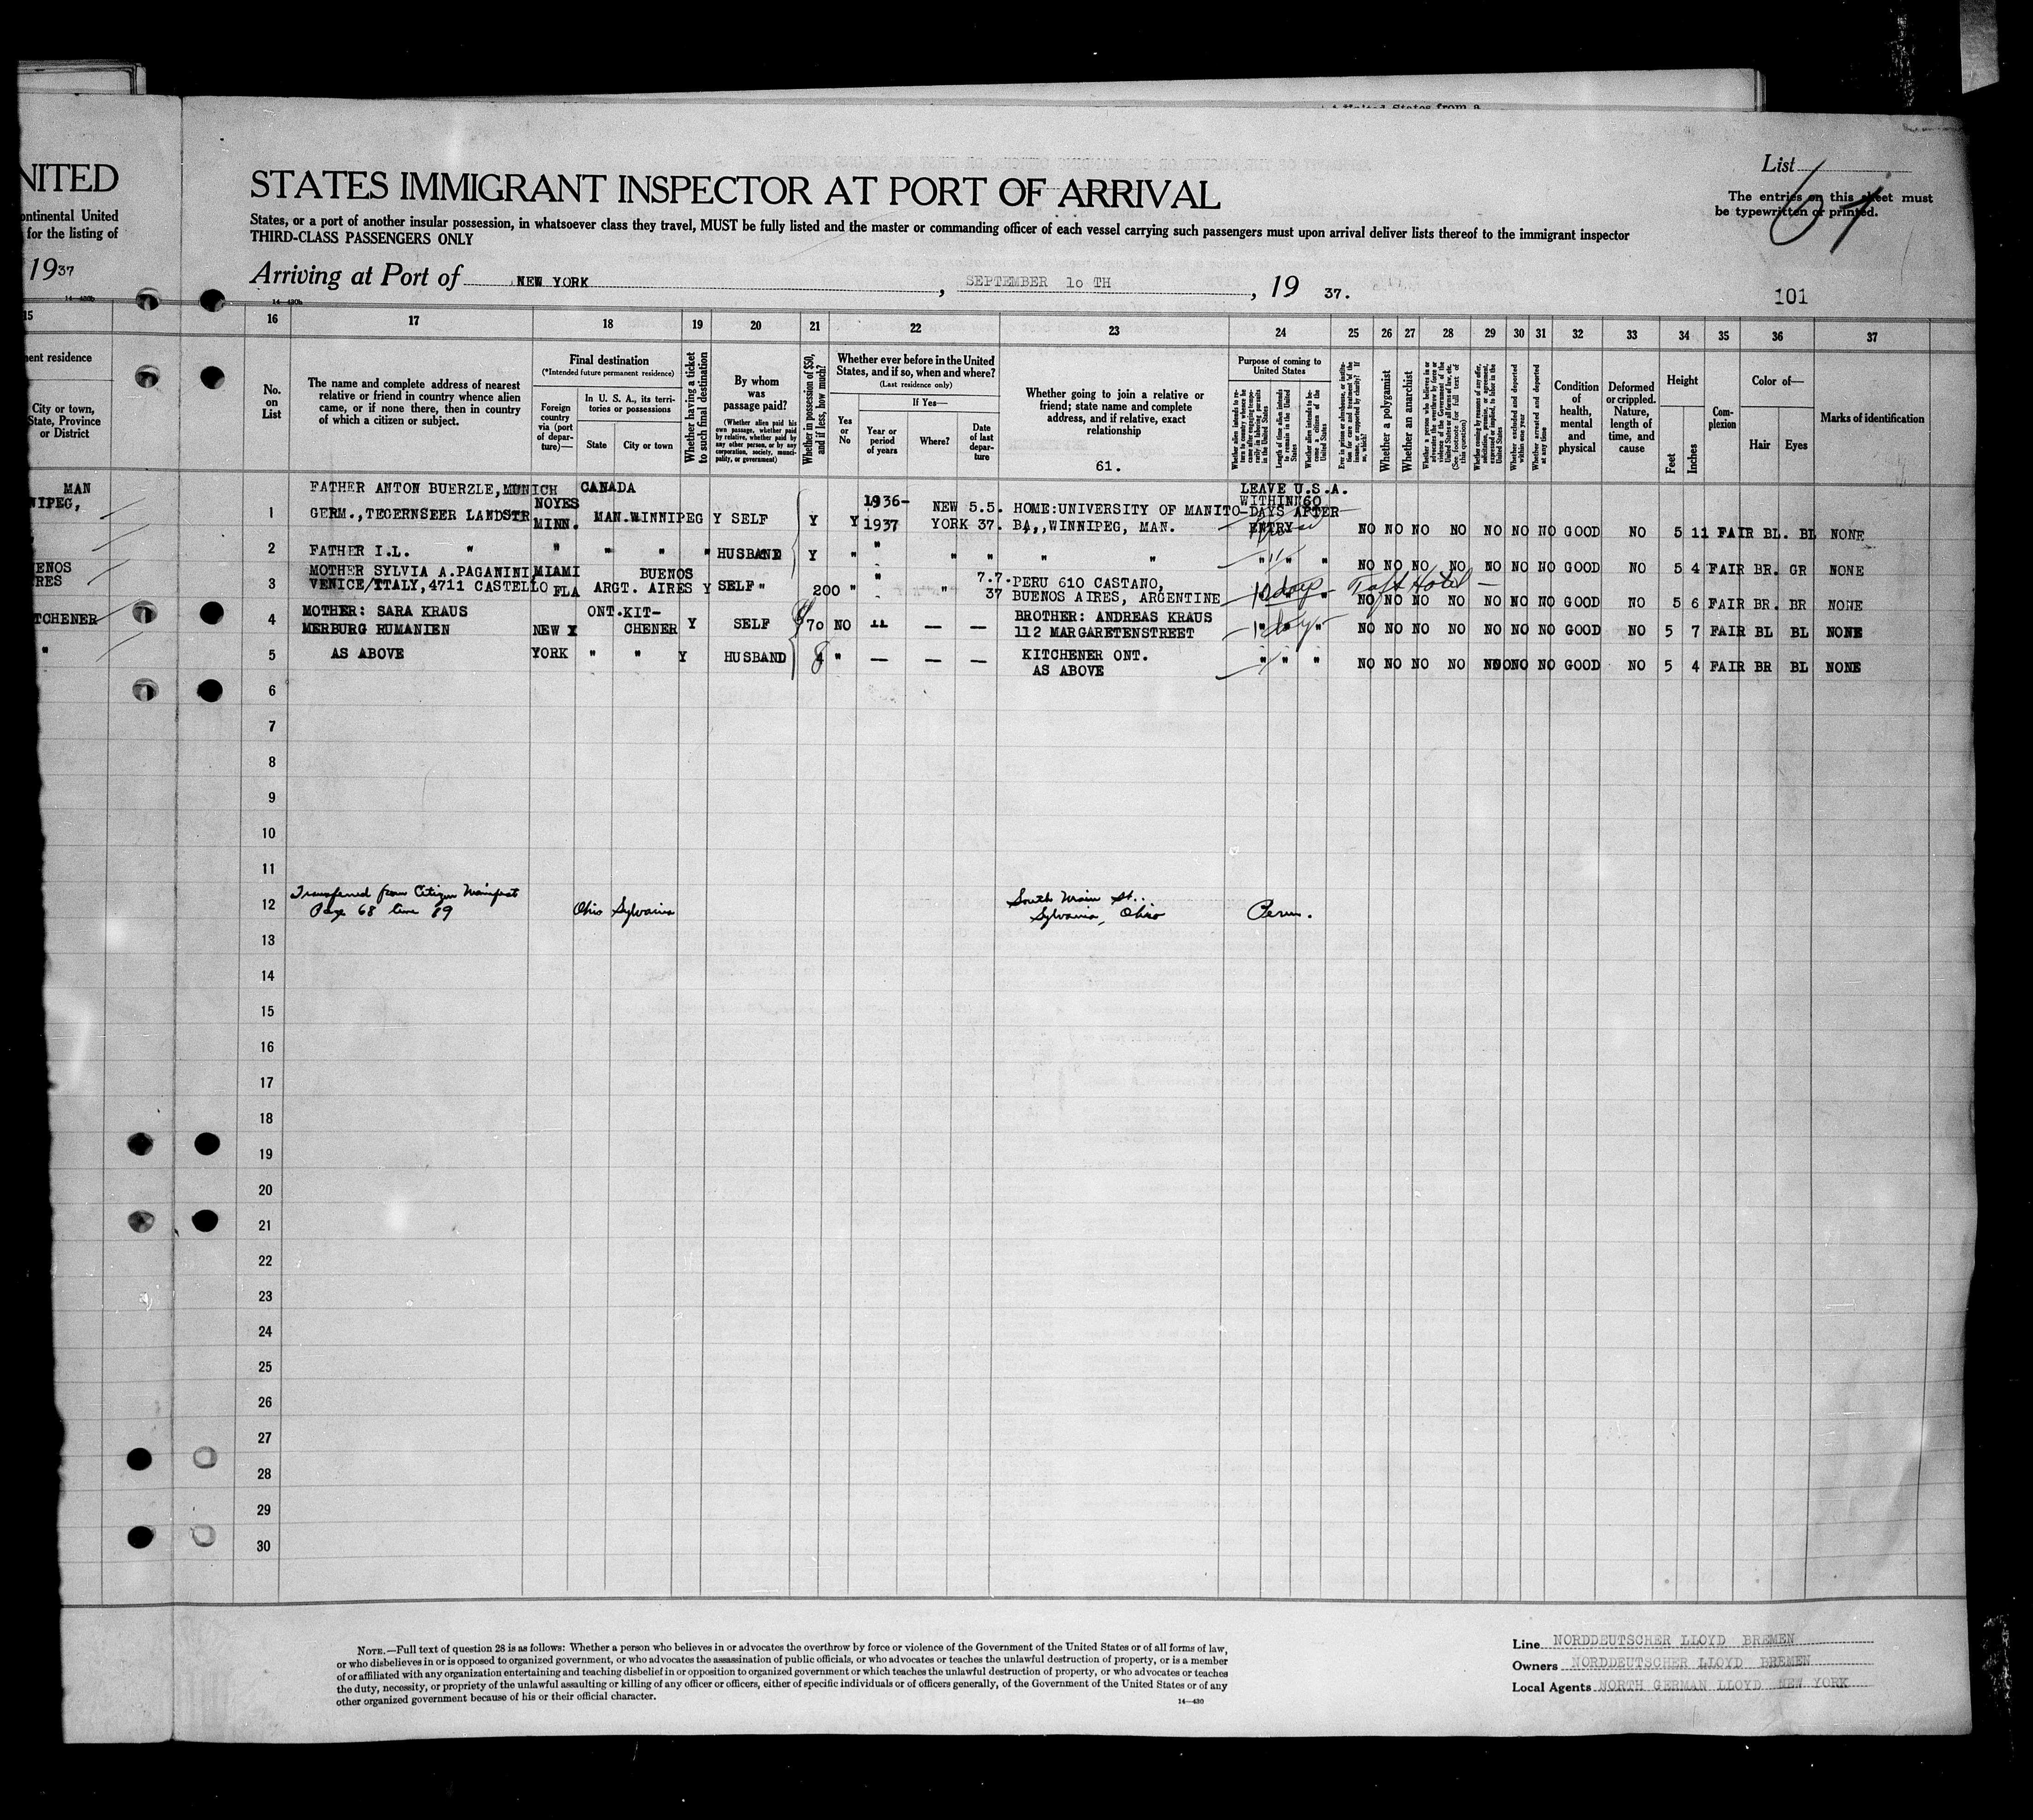 NITED
ontinental United
for the listing of
1937
14-430b
15
ent residence
City or town,
State, Province
or District
MAN
NIPEG,
ENOS
RES
TCHENER
"
List
The entries on this sheet must
be typewritten or printed.
STATES IMMIGRANT INSPECTOR AT PORT OF ARRIVAL
States, or a port of another insular possession, in whatsoever class they travel, MUST be fully listed and the master or commanding officer of each vessel carrying such passengers must upon arrival deliver lists thereof to the immigrant inspector
THIRD-CLASS PASSENGERS ONLY
Arriving at Port of NEW YORK, SEPTEMBER 1o TH, 19 37.
101
14-430b
16 17 18 19 20 21 22 23 24 25 26 27 28 29 30 31 32 33 34 35 36 37
No.
on
List
The name and complete address of nearest
relative or friend in country whence alien
came, or if none there, then in country
of which a citizen or subject.
Final destination
(*Intended future permanent residence)
Foreign
country
via (port
of depar-
ture)—
In U. S. A., its terri-
tories or possessions
State
City or town
Whether having a ticket
to such final destination
By whom
was
passage paid?
(Whether alien paid his
own passage, whether paid
by relative, whether paid by
any other person, or by any
corporation, society, munici-
pality, or government)
Whether in possession of $50,
and if less, how much?
Whether ever before in the United
States, and if so, when and where?
(Last residence only)
Yes
or
No
If Yes—
Year or
period
of years
Where?
Date
of last
depar-
ture
Whether going to join a relative or
friend; state name and complete
address, and if relative, exact
relationship
61.
Purpose of coming to
United States
Whether alien intends to re-
turn to country whence he
came after engaging tempo-
rarily in laboring pursuits
in the United States
Length of time alien intends
to remain in the United
States
Whether alien intends to be-
come a citizen of the
United States
Ever in prison or almshouse, or institu-
tion for care and treatment of the
insane, or supported by charity? If
so, which?
Whether a polygamist
Whether an anarchist
Whether a person who believes in or
advocates the overthrow by force or
violence of the Government of the
United States or all forms of law, etc.
(See footnote for full text of
this question)
Whether coming by reasons of any offer,
solicitation, promise, or agreement,
expressed or implied, to labor in the
United States
Whether excluded and deported
within one year
Whether arrested and deported
at any time
Condition
of
health,
mental
and
physical
Deformed
or crippled.
Nature,
length of
time, and
cause
Height
Feet
Inches
Com-
plexion
Color of—
Hair
Eyes
Marks of identification
FATHER ANTON BUERZLE, MUNICH CANADA LEAVE U.S.A.
NOYES 1936- WITHIN 60
1 GERM., TEGERNSEER LANDSTR MINN. MAN. WINNIPEG Y SELF Y Y 1937 NEW YORK 5.5. 37. HOME:UNIVERSITY OF MANITO- DAYS AFTER
BA,,WINNIPEG, MAN. ENTRY NO NO NO NO NO NO NO GOOD NO 5 11 FAIR BL. BL NONE
2 FATHER I.L. " " " " " HUSBAND Y " " " " " " " " " NO NO NO NO NO NO NO GOOD NO 5 4 FAIR BR. GR NONE
MOTHER SYLVIA A.PAGANINI MIAMI BUENOS " 7.7. PERU 610 CASTANO,
3 VENICE/ITALY, 4711 CASTELLO FLA ARGT. AIRES Y SELF " 200 " " 37 BUENOS AIRES, ARGENTINE 12 days Taft Hotel — NO NO NO NO NO NO NO GOOD NO 5 6 FAIR BR. BR NONE
MOTHER: SARA KRAUS ONT. KIT- BROTHER: ANDREAS KRAUS
4 MERBURG RUMANIEN NEW X CHENER Y SELF 70 NO — — 112 MARGARETENSTREET " " NO NO NO NO NO NO NO GOOD NO 5 7 FAIR BL BL NONE
5 AS ABOVE YORK " " Y HUSBAND " — — — KITCHENER ONT.
AS ABOVE " " " NO NO NO NO NO NO NO GOOD NO 5 4 FAIR BR BL NONE
6
7
8
9
10
11
12 Transferred from Citizen Manifest
Page 68 line 89 Ohio Sylvania South Main St.
Sylvania, Ohio Perm.
13
14
15
16
17
18
19
20
21
22
23
24
25
26
27
28
29
30
NOTE.—Full text of question 28 is as follows: Whether a person who believes in or advocates the overthrow by force or violence of the Government of the United States or of all forms of law,
or who disbelieves in or is opposed to organized government, or who advocates the assassination of public officials, or who advocates or teaches the unlawful destruction of property, or is a member
of or affiliated with any organization entertaining and teaching disbelief in or opposition to organized government or which teaches the unlawful destruction of property, or who advocates or teaches
the duty, necessity, or propriety of the unlawful assaulting or killing of any officer or officers, either of specific individuals or of officers generally, of the Government of the United States or of any
other organized government because of his or their official character.
14—430
Line NORDDEUTSCHER LLOYD BREMEN
Owners NORDDEUTSCHER LLOYD BREMEN
Local Agents NORTH GERMAN LLOYD NEW YORK